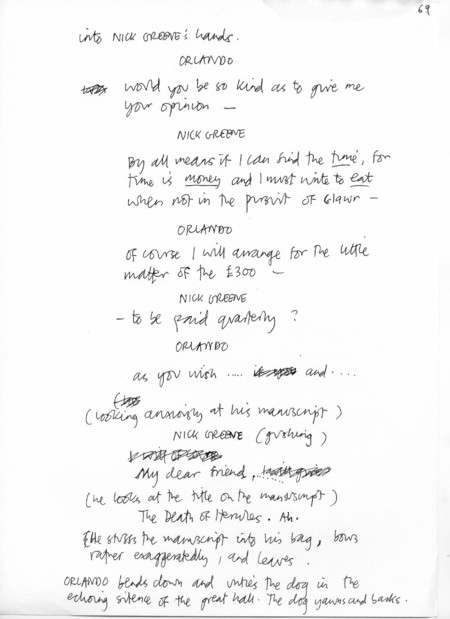 69
into NICK GREENE's hands.
ORLANDO
would you be so kind as to give me
your opinion —
NICK GREENE
By all means if I can find the time, for
time is money and I must write to eat
when not in the pursuit of Glawr —
ORLANDO
of course I will arrange for the little
matter of the £300 —
NICK GREENE
— to be paid quarterly?
ORLANDO
as you wish ..... and ....
(looking anxiously at his manuscript)
NICK GREENE (gushing)
My dear friend, ......
(he looks at the title on the manuscript)
The Death of Hercules. Ah.
He stuffs the manuscript into his bag, bows
rather exaggeratedly, and leaves.
ORLANDO bends down and unties the dog in the
echoing silence of the great hall. The dog yawns and barks.